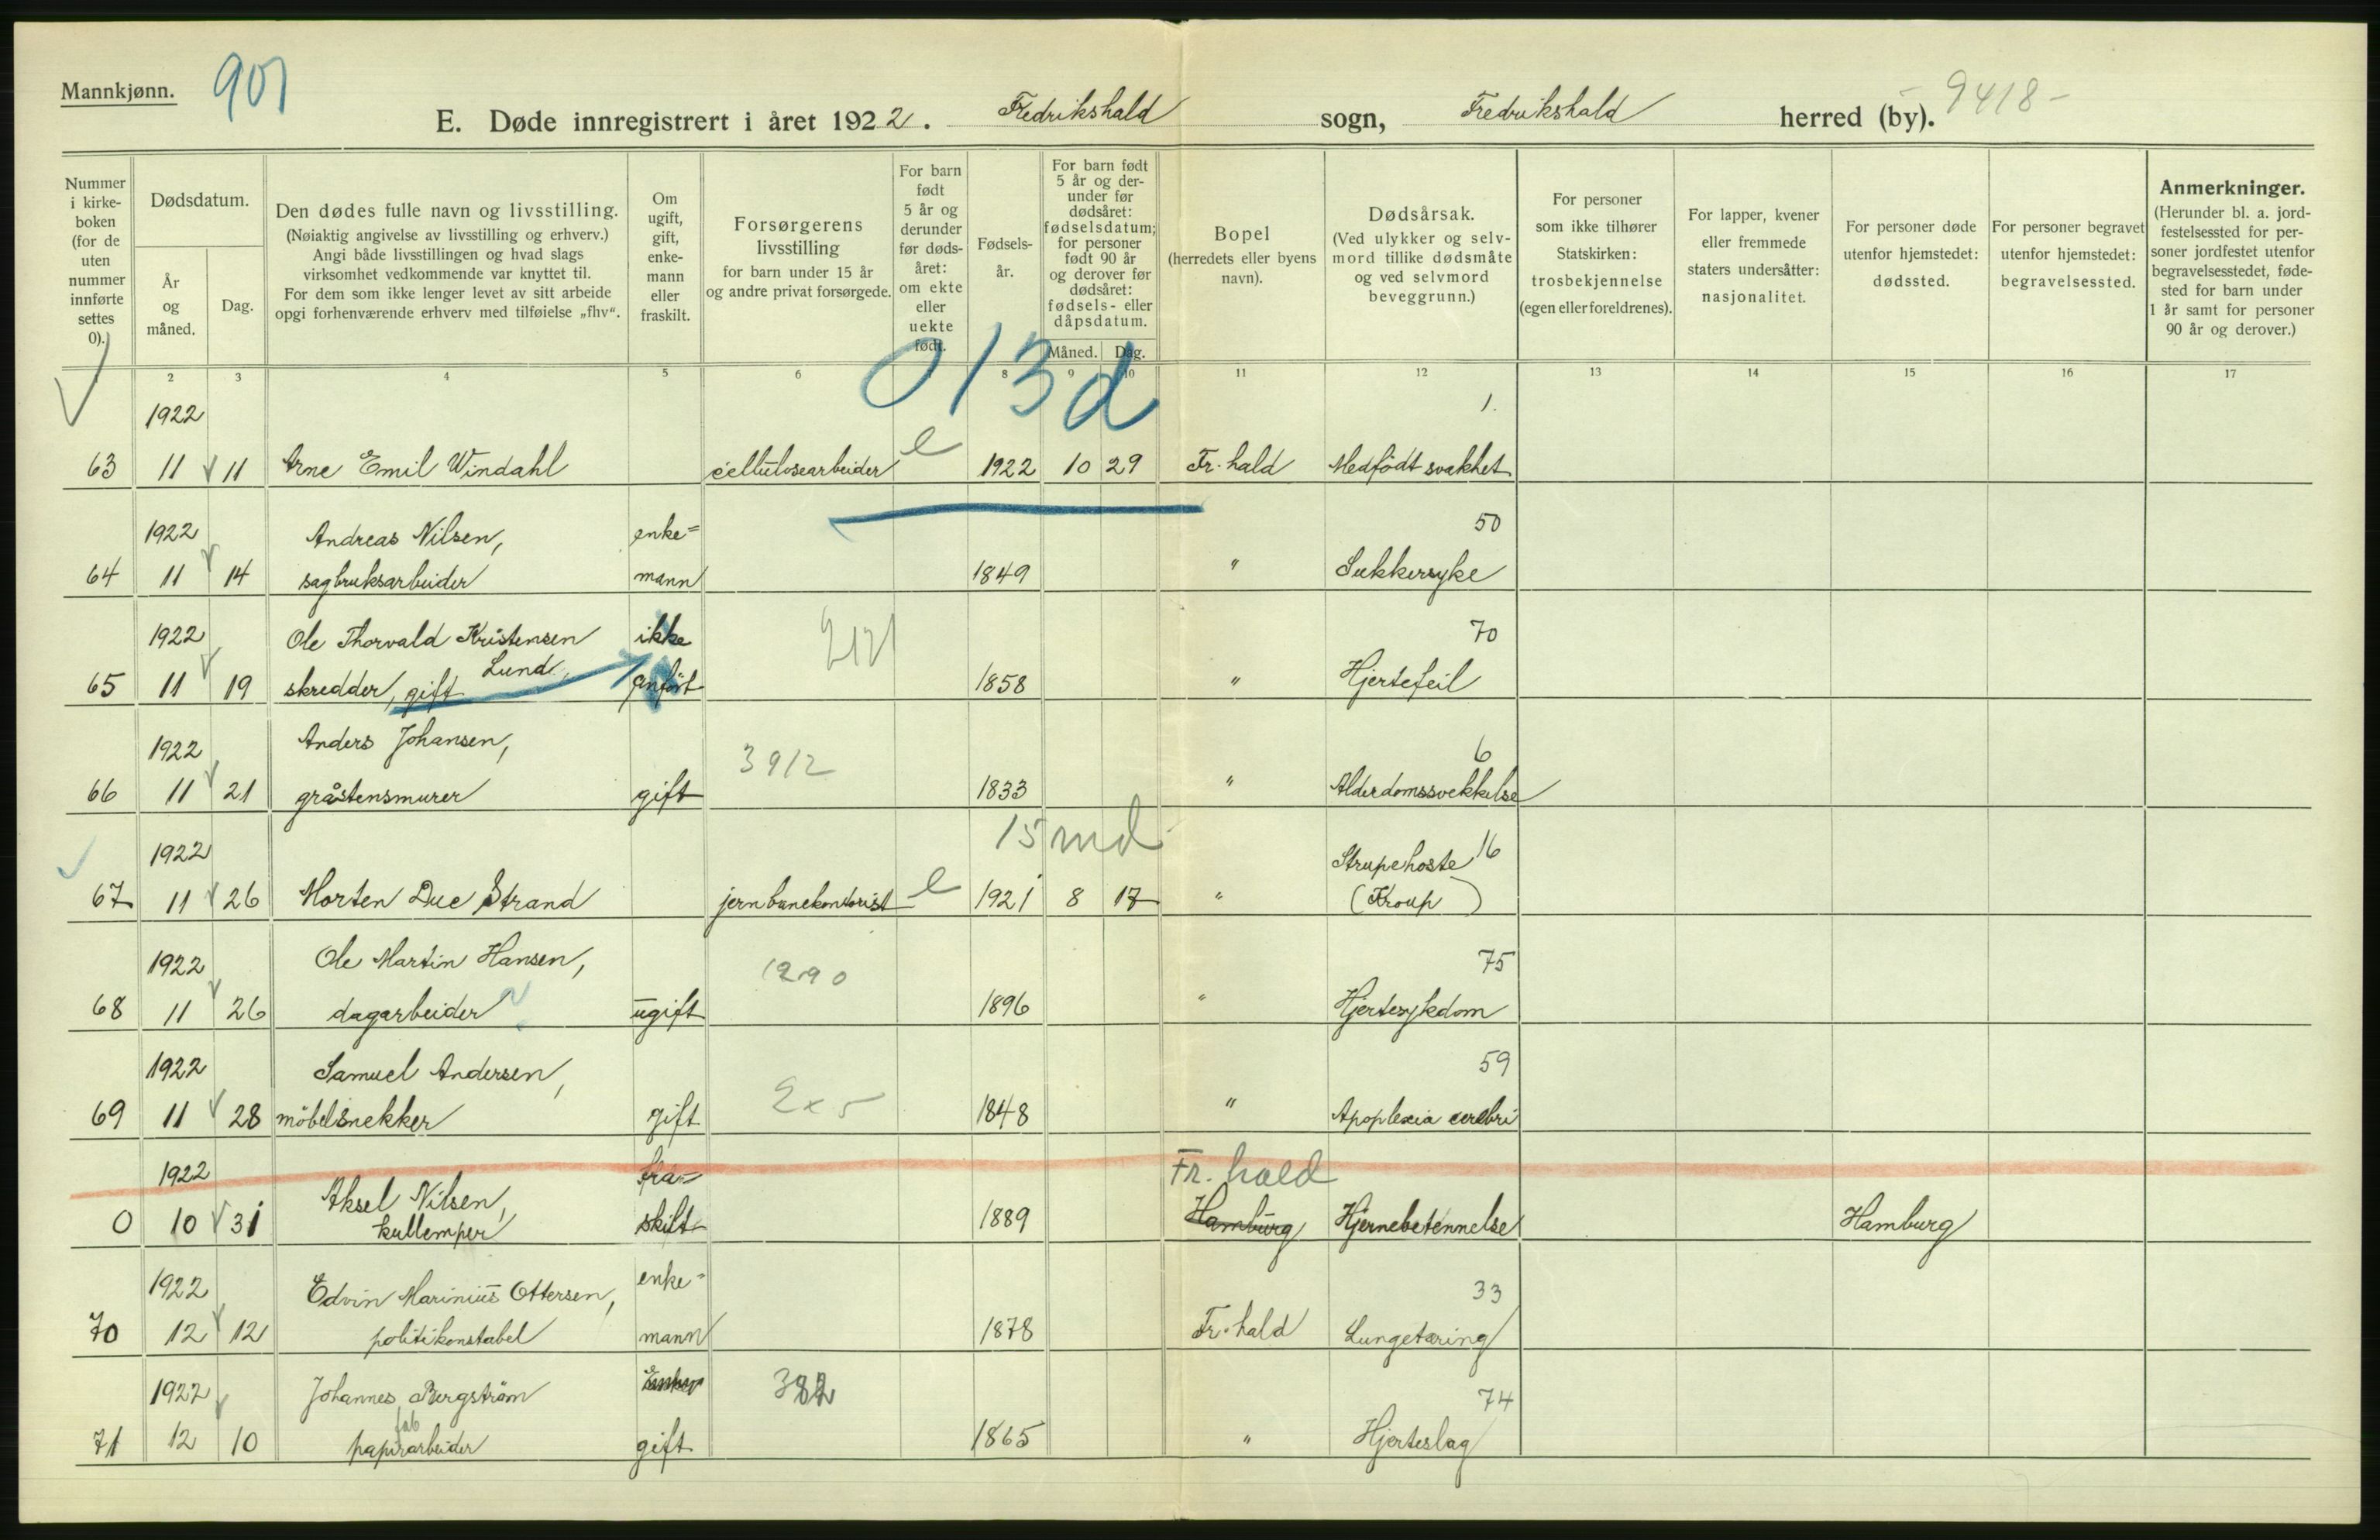 Mannkjønn.
901
E. Døde innregistrert i året 1922. Fredrikshald sogn, Fredrikshald herred (by). 9418-
Nummer i kirke-boken (for de uten nummer innførte settes 0).
Dødsdatum.
År og måned.
Dag.
Den dødes fulle navn og livsstilling.
(Nøiaktig angivelse av livsstilling og erhverv.)
Angi både livsstillingen og hvad slags
virksomhet vedkommende var knyttet til.
For dem som ikke lenger levet av sitt arbeide
opgi forhenværende erhverv med tilføielse „fhv“.
Om ugift, gift, enke-mann eller fraskilt.
Forsørgerens
livsstilling
for barn under 15 år
og andre privat forsørgede.
For barn født 5 år og derunder før døds-året: om ekte eller uekte født.
Fødsels-år.
For barn født 5 år og der-under før dødsåret: fødselsdatum; for personer født 90 år og derover før dødsåret: fødsels- eller dåpsdatum.
Måned. Dag.
Bopel
(herredets eller byens
navn).
Dødsårsak.
(Ved ulykker og selv-
mord tillike dødsmåte
og ved selvmord
beveggrunn.)
For personer
som ikke tilhører
Statskirken:
trosbekjennelse
(egen eller foreldrenes).
For lapper, kvener
eller fremmede
staters undersåtter:
nasjonalitet.
For personer døde
utenfor hjemstedet:
dødssted.
For personer begravet
utenfor hjemstedet:
begravelsessted.
Anmerkninger.
(Herunder bl. a. jord-
festelsessted for per-
soner jordfestet utenfor
begravelsesstedet, føde-
sted for barn under
1 år samt for personer
90 år og derover.)
2 3 4 5 6 8 9 10 11 12 13 14 15 16 17
013d
1922 1.
63 11 11 Arne Emil Windahl cellulosearbeider e 1922 10 29 Fr. hald Medfødt svakhet
1922 Andreas Nilsen, enke= 50
64 11 14 sagbruksarbeider mann 1849 " Sukkersyke
1922 Ole Thorvald Kristensen ikke 70
Lund,
65 11 19 skredder, gift anført 1858 " Hjertefeil
1922 Anders Johansen, 3912 6
66 11 21 gråstensmurer gift 1833 " Alderdomssvekkelse
15 md
1922 Strupehoste 16
67 11 26 Morten Due Strand jernbanekontorist e 1921 8 17 " (Kroup)
1922 Ole Martin Hansen, 1290 75
68 11 26 dagarbeider ugift 1896 " Hjertesykdom
1922 Samuel Andersen, 59
69 11 28 möbelsnekker gift 2x5 1848 " Apoplexia cerebri
1922 Aksel Nilsen, fra= Fr. hald
0 10 31 kullemper skilt 1889 Hamburg Hjernebetennelse Hamburg
1922 Edvin Marinius Ottersen, enke= 33
70 12 12 politikonstabel mann 1878 Fr. hald Lungetæring
1922 Johannes Bergström 382 74
fab
71 12 10 papirarbeider gift 1865 " Hjerteslag